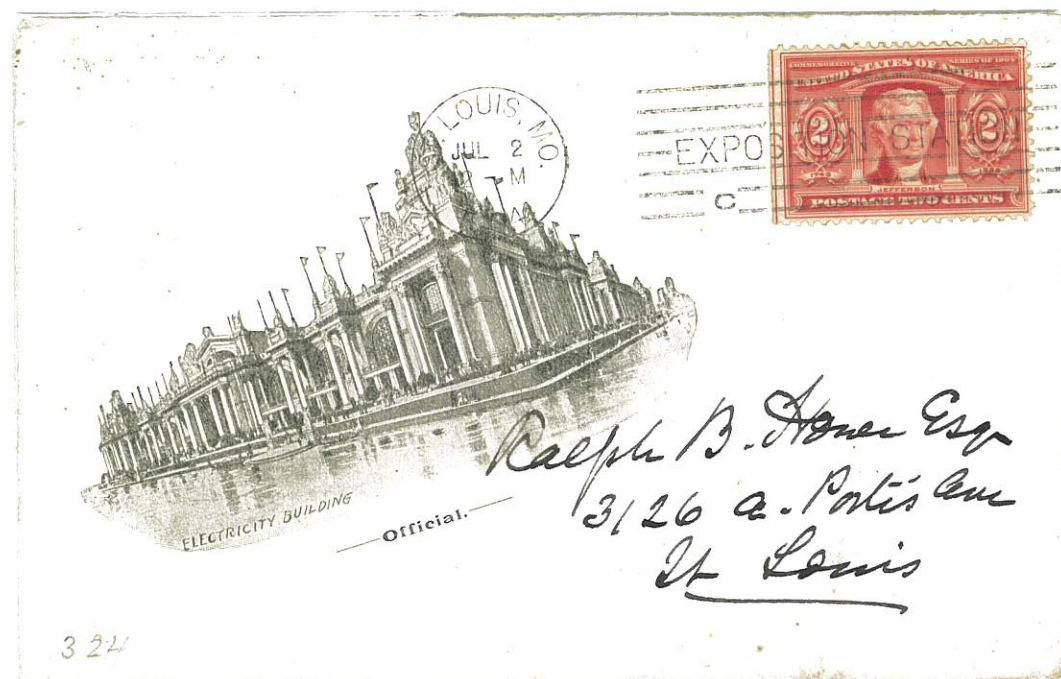 LOUIS, MO.
JUL 2
M
EXPOSITION STA
C
COMMEMORATIVE SERIES OF 1904
UNITED STATES OF AMERICA
2 2
JEFFERSON
POSTAGE TWO CENTS
ELECTRICITY BUILDING
Official.
Ralph B. Esqr
3126 a. Portis Ave
St Louis
324